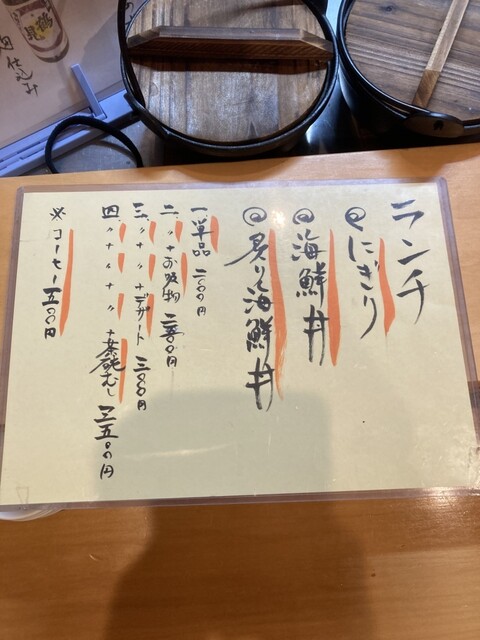 ランチ
◎にぎり
◎海鮮丼
◎炙り海鮮丼
一、単品 二〇〇〇円
二、〃+お吸物 二三〇〇円
三、〃+〃+デザート 三〇〇〇円
四、〃+〃+〃+茶碗むし 三五〇〇円
※コーヒー五〇〇円
仕込み